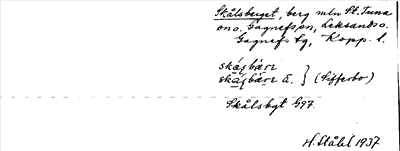 Skålsberget, berg mln St. Tuna
o. Gagnefs sn, Leksands o.
Gagnefs tg, Kopp. l.
skáɕbàrr
skáɕbàrr ä. } (Sifferbo)
Skålsbgt G97.
H. Ståhl 1937